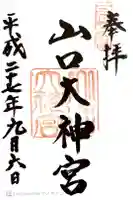 奉拝
山口大神宮
平成二十七年九月六日